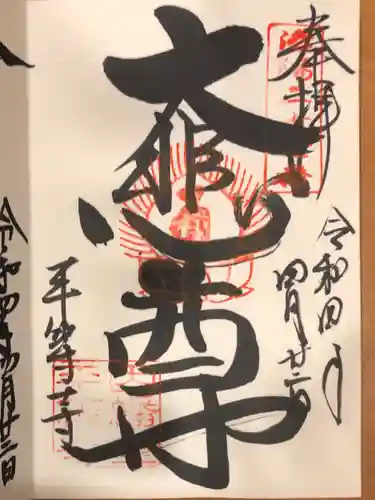 奉拝
令和四年
四月廿二日
大悲尊
平等寺
令和四年四月廿三日